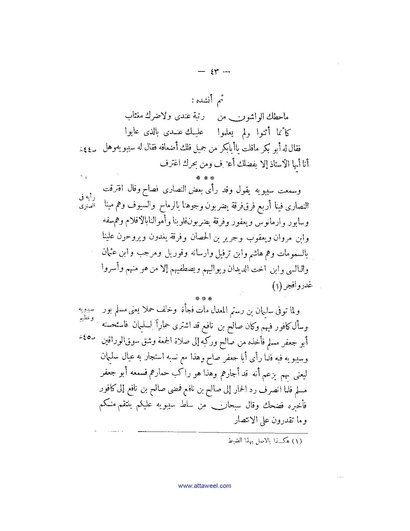 — ٤٣ —
ثم أنشده :
ماحطك الواشون من رتبة عندى ولاضرك مغتاب
كأنما أثنوا ولم يعلموا عليك عندى بالذى عابوا
فقال له أبو بكر ماقلت ياأبابكر من جميل فلك أضعافه فقال له سيبويه وهل ص٤٤
أنا أيها الاستاذ إلا بفضلك أعرف ومن بحرك اغترف
***
وسمعت سيبويه يقول وقد رأى بعض النصارى فصاح وقال افترقت رأيه فى
النصارى فينا أربع فرق فرقة يضربون وجوهنا بالرماح والسيوف وهم مينا النصارى
وسابور وارمانوس ويعفور وفرقة يضربون قلوبنا وأموالنا بالأقلام وهم سفه
وابن مروان ويعقوب وجرير بن الحصان وفرقة يغدون ويروحون علينا
بالسمومات وهم هاشم وابن ترفيل وارسانه وفوريل ومرحب وابن عثمان
والنالسى وابن اخت الديدان ويواليهم ويصطفيهم إلا من هو منهم وأسروا
غدروافجر (١)
***
ولما توفى سليمان بن رستم المعدل مات فجأة وخلف حملا يعنى مسلم بور سيبويه
وسأل كافور فيهم وكان صالح بن نافع قد اشترى حماراً لسليمان فاستحسنه
أبو جعفر مسلم فأخذه من صالح وركبه إلى صلاة الجمعة وشق سوق الوراقين ص٤٥
وسيبويه فيه فلما رأى أبا جعفر صاح وهذا مع نسبه استجار به عيال سليمان
ليعنى بهم يزعم أنه قد أجارهم وهذا هو راكب حمارهم فسمعه أبو جعفر
مسلم فلما انصرف رد الحمار إلى صالح بن نافع فمضى صالح بن نافع إلى كافور
فأخبره فضحك وقال سبحان من ساط سيبويه عليكم ينتقم منكم
وما تقدرون على الانتصار
(١) هكذا بالاصل بهذا الضبط
www.attaweel.com